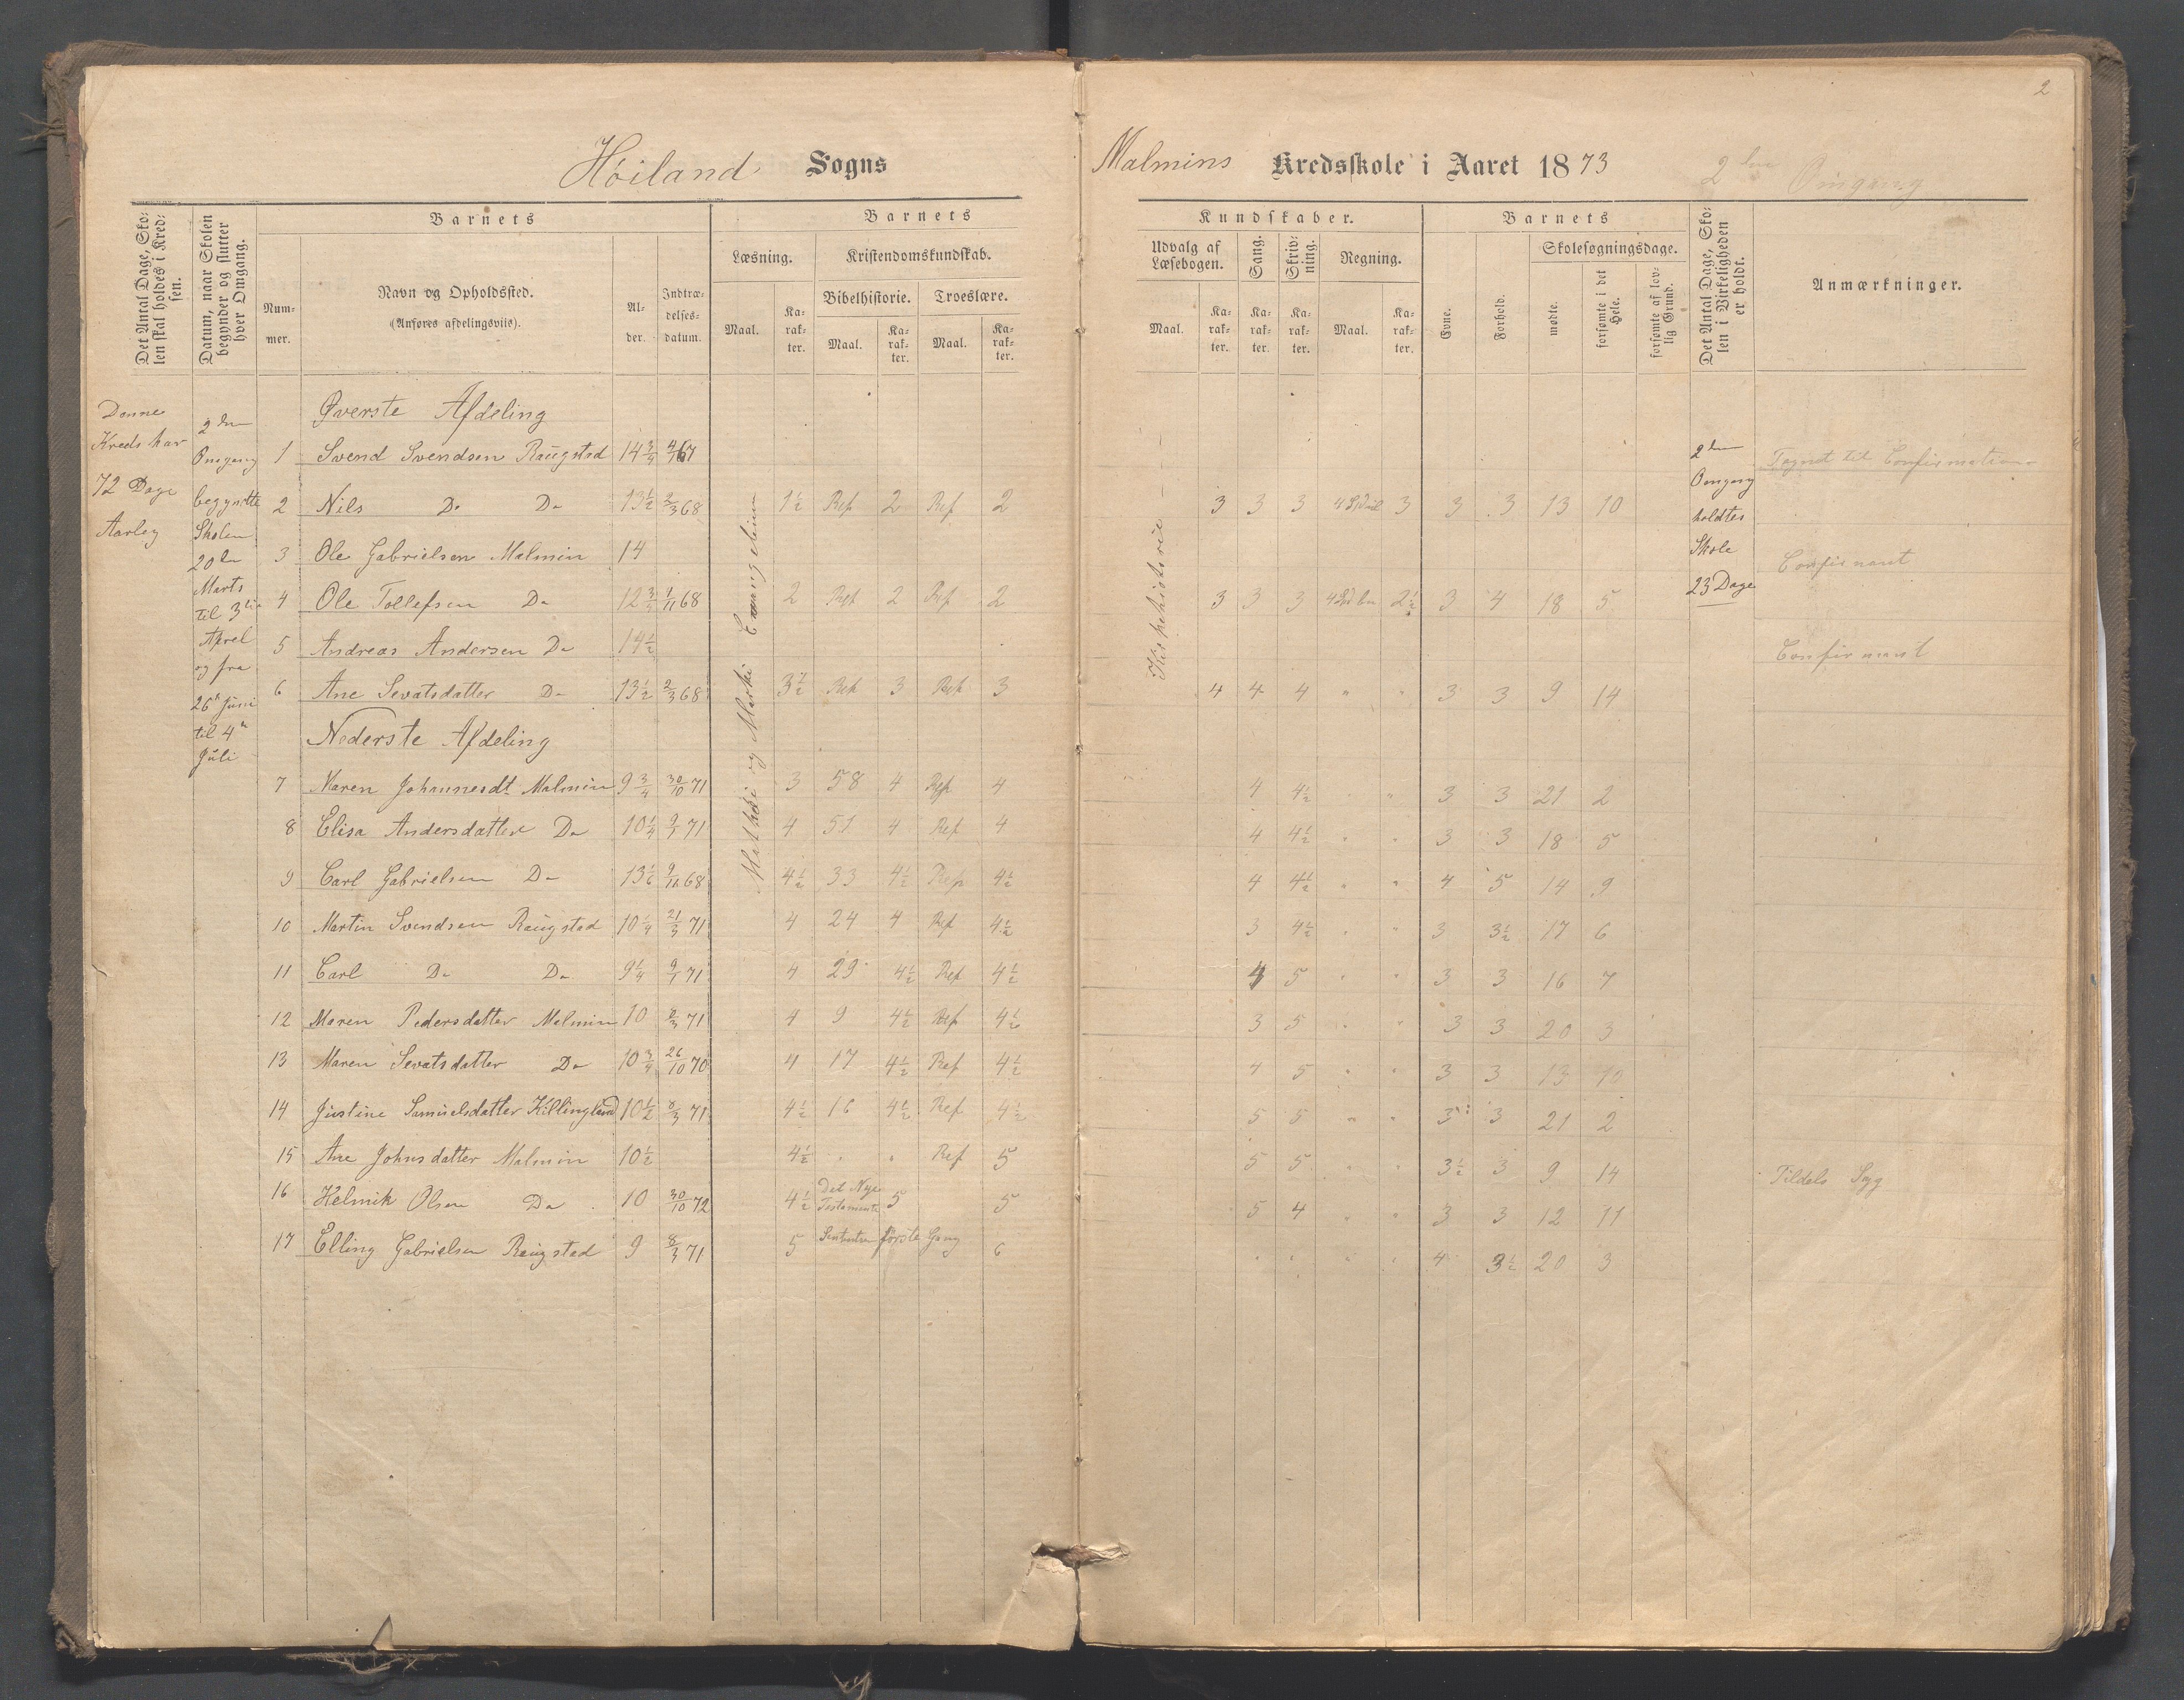 2
Höiland Sogns Malmins Kredsskole i Aaret 1873 2den Omgang
Det Antal Dage, Skolen skal holdes i Kredsen.
Datum, naar Skolen begynder og slutter hver Omgang.
Barnets
Nummer.
Navn og Opholdssted.
(Anføres afdelingsviis).
Alder.
Indtrædelsesdatum.
Barnets
Læsning.
Maal.
Karakter.
Kristendomskundskab.
Bibelhistorie.
Maal.
Karakter.
Troeslære.
Maal.
Karakter.
Kundskaber.
Udvalg af Læsebogen.
Maal.
Karakter.
Sang.
Karakter.
Skrivning.
Karakter.
Regning.
Maal.
Karakter.
Barnets
Evne.
Forhold.
Skolesøgningsdage.
mødte.
forsømte i det Hele.
forsømte af lovlig Grund.
Det Antal Dage, Skolen i Virkeligheden er holdt.
Anmærkninger.
Denne
Kreds har
72 Dage
Aarleg
2den
Omgang
begyndte
Skolen
20de
Marts
til 3die
April
og fra
26de Juni
til 4de
Juli
Matthæi og Marki Evangelium
Kirkehistorie
2den
Omgang
holdtes
Skole
23 Dage
Øverste Afdeling
1 Svend Svendsen Raugstad 14 3/4 67 Confirmation
2 Nils Do Do 13 1/2 2/3 68 1 1/2 Rep 2 Rep 2 3 3 3 3 3 3 13 10
3 Ole Gabrielsen Malmin 14 Confirmant
4 Ole Tollefsen Do 12 3/4 1/11 68 2 Rep 2 Rep 2 3 3 3 2 1/2 3 4 18 5
5 Andreas Andersen Do 14 1/2 Confirmant
6 Ane Sevatsdatter Do 13 1/2 2/3 68 3 1/2 Rep 3 Rep 3 4 4 4 " " 3 3 9 14
Nederste Afdeling
7 Maren Johannesdt Malmin 9 3/4 30/10 71 3 58 4 Rep 4 4 4 1/2 " " 3 3 21 2
8 Elisa Andersdatter Do 10 1/4 9/1 71 4 51 4 Rep 4 4 4 1/2 " " 3 3 18 5
9 Carl Gabrielsen Do 13 1/6 9/11 68 4 1/2 33 4 1/2 Rep 4 1/2 4 4 1/2 " " 4 5 14 9
10 Martin Svendsen Raugstad 10 1/4 21/3 71 4 24 4 Rep 4 1/2 3 4 1/2 " " 3 3 1/2 17 6
11 Carl Do Do 9 1/4 9/1 71 4 29 4 1/2 Rep 4 1/2 4 5 " " 3 3 16 7
12 Maren Pedersdatter Malmin 10 8/3 71 4 9 4 1/2 Rep 4 1/2 3 5 " " 3 3 20 3
13 Maren Sevatsdatter Do 10 3/4 26/10 70 4 17 4 1/2 Rep 4 1/2 4 5 " " 3 3 13 10
14 Justine Samuelsdatter Killingland 10 1/2 8/3 71 4 1/2 16 4 1/2 Rep 4 1/2 5 5 " " 3 3 21 2
15 Ane Johnsdatter Malmin 10 1/2 4 1/2 " " Rep 5 5 5 " " 3 1/2 3 9 14 Tildels Syg
16 Helmik Olsen Do 10 30/10 72 4 1/2 Det Nye Testamente 5 5 5 4 " " 3 3 12 11
17 Elling Gabrielsen Raugstad 9 8/3 71 5 første Gang 6 " " " " 4 3 1/2 20 3